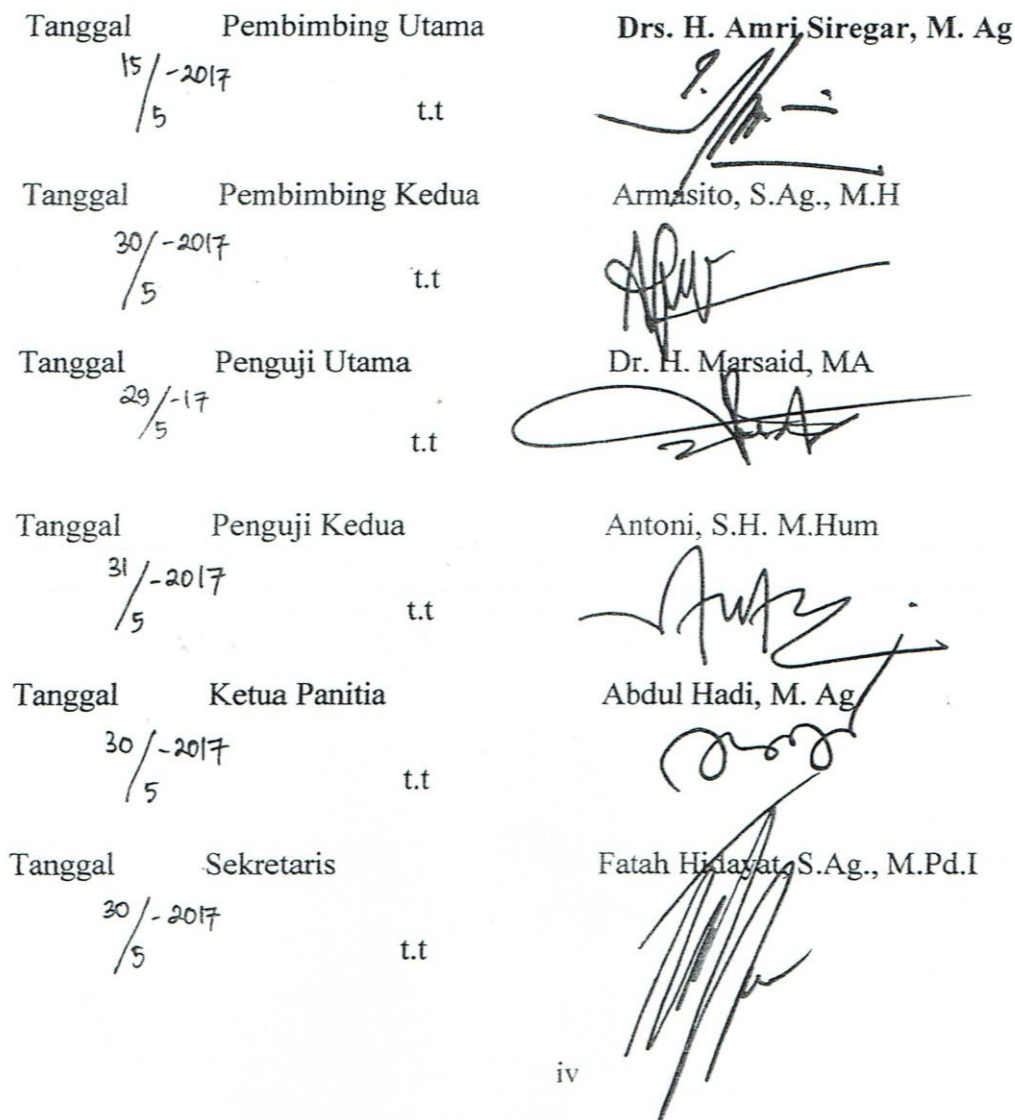 Tanggal Pembimbing Utama Drs. H. Amri Siregar, M. Ag
15/5-2017
t.t
Tanggal Pembimbing Kedua Armasito, S.Ag., M.H
30/5-2017
t.t
Tanggal Penguji Utama Dr. H. Marsaid, MA
29/5-17
t.t
Tanggal Penguji Kedua Antoni, S.H. M.Hum
31/5-2017
t.t
Tanggal Ketua Panitia Abdul Hadi, M. Ag
30/5-2017
t.t
Tanggal Sekretaris Fatah Hidayat, S.Ag., M.Pd.I
30/5-2017
t.t
iv